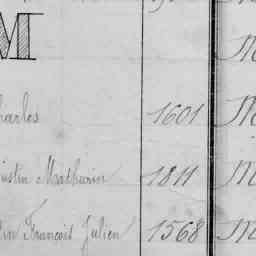 M
M
harles 1601 M
ustin Mathurin 1811 M
lin François Julien 1568 M